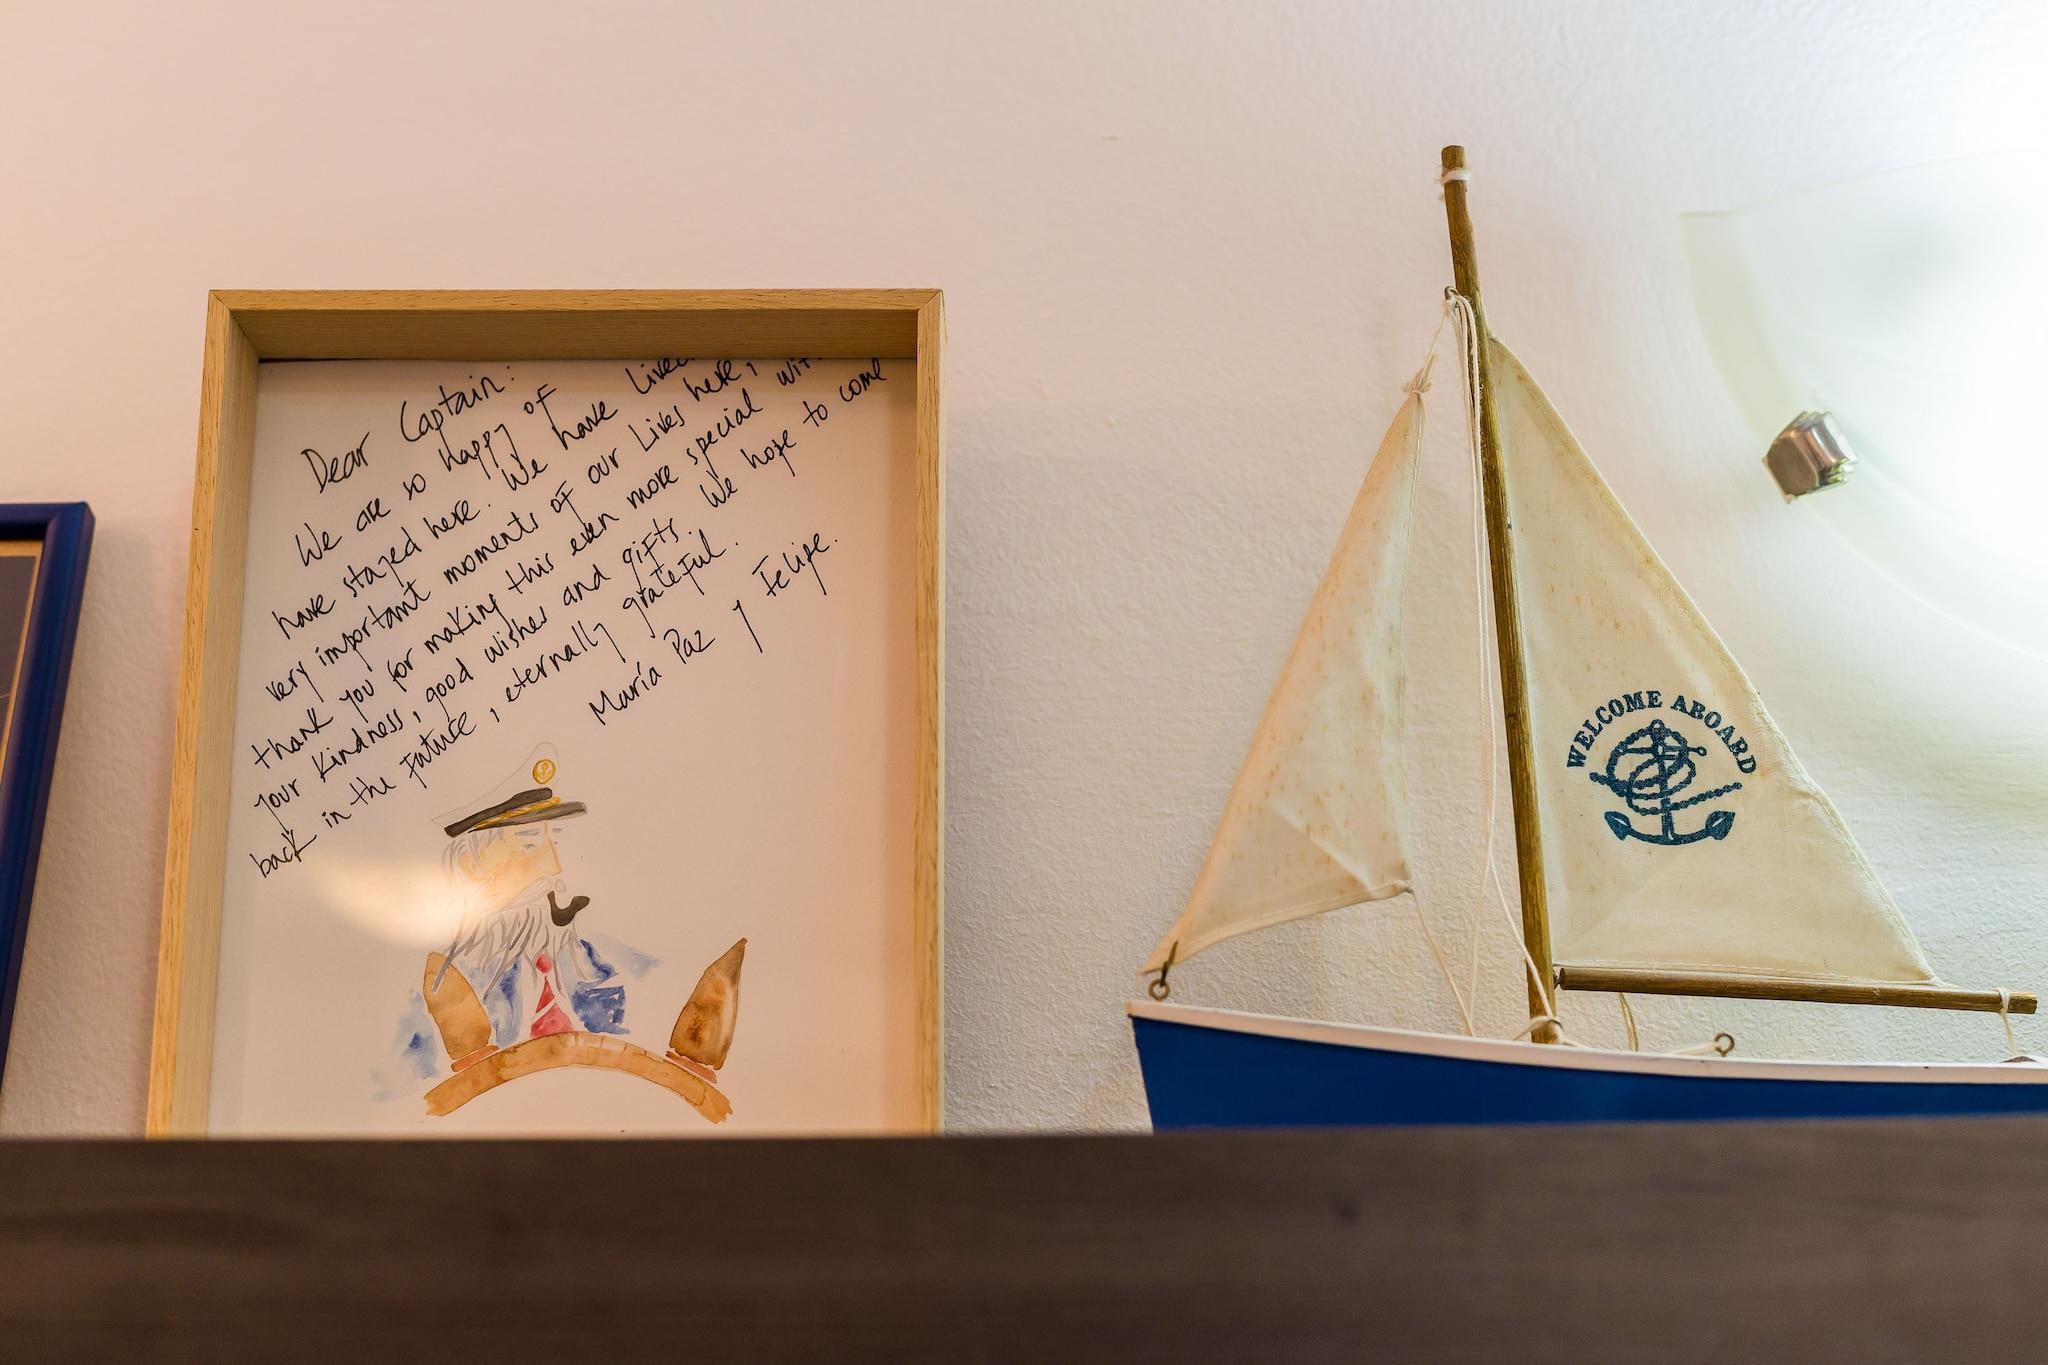 Dear Captain:
We are so happy of
have stayed here. We have lived
very important moments of our lives here,
thank you for making this even more special with
your kindness, good wishes and gifts. We hope to come
back in the future, eternally grateful.
María Paz y Felipe.
WELCOME ABOARD